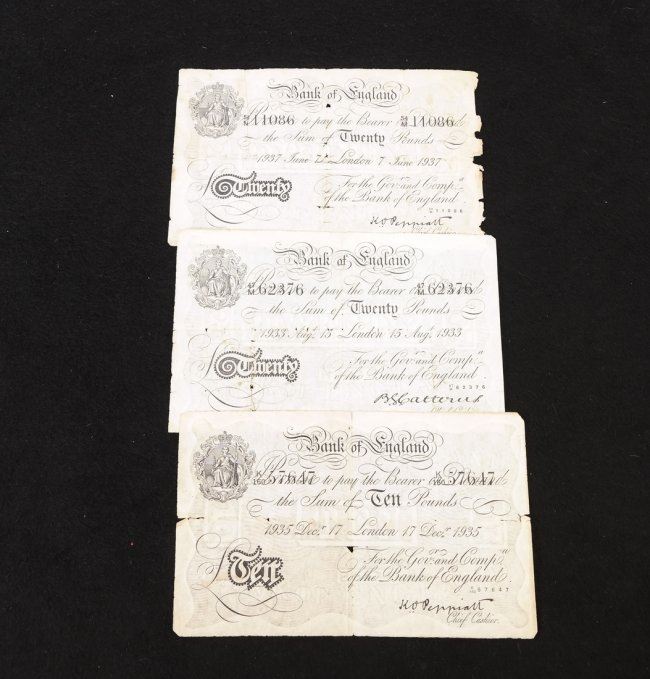 Bank of England
11086 to pay the Bearer on Demand 11086
the Sum of Twenty Pounds
1937 June 7 London 7 June 1937
Twenty
For the Govr. and Compa.
of the Bank of England
11086
K O Peppiatt
Chief
Bank of England
62376 to pay the Bearer on Demand 62376
the Sum of Twenty Pounds
1933 Augt. 15 London 15 Augt. 1933
Twenty
For the Govr. and Compa.
of the Bank of England
62376
B G Catterns
Bank of England
K/160 57647 to pay the Bearer on Demand K/160 57647
the Sum of Ten Pounds
1935 Decr. 17 London 17 Decr. 1935
Ten
For the Govr. and Compa.
of the Bank of England.
57647
K O Peppiatt
Chief Cashier.